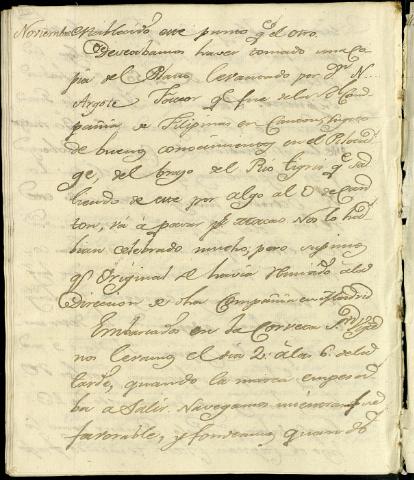 Noviembre. Hablando este primo q.e el otro.
Deseabamos haver tomado una Co-
pia del Plano, levantado por D.n N...
Argote Factor q.e fue de la R.l Com-
pañia de Filipinas en Canton, sugeto
de buenos conocimientos en el Pilota-
ge del brazo del Rio tigris q.e sa-
liendo de este por algo al O de Can-
ton, vá á pasar p.r Macao. Nos lo ha-
bian celebrado mucho, pero supimos
q.e Original se havia remitido a la
Direccion de dha Compañia en Madrid.
Embarcados en la Corveta S.n
nos levamos el dia 2. á las 6. de la
tarde, quando la marea empeza-
ba a Salir. Navegamos mientras fue
favorable, y fondeamos quando